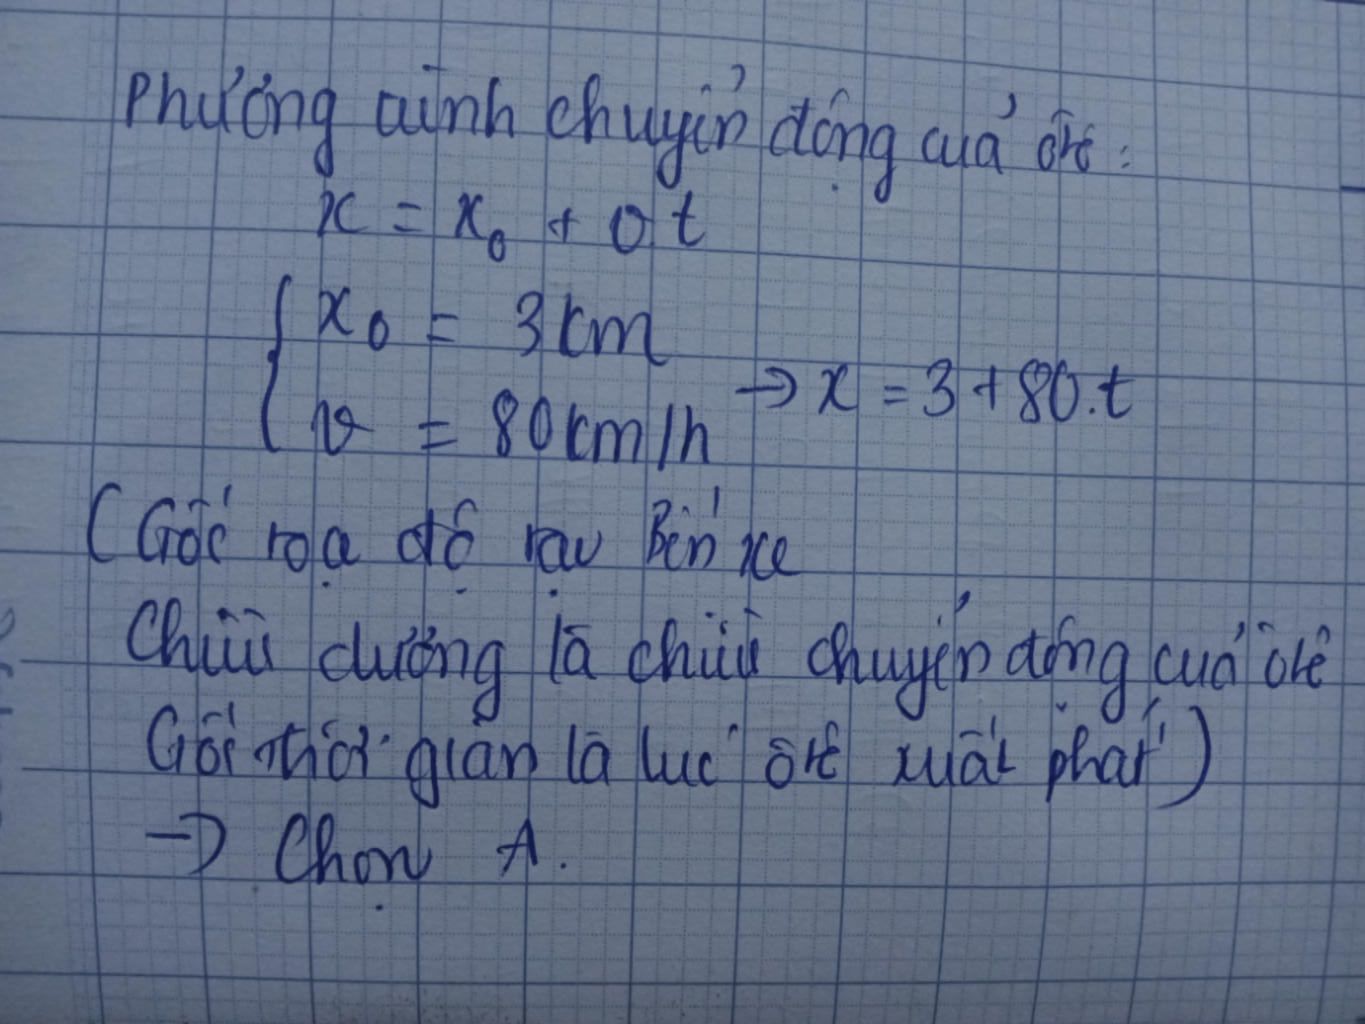 Phương trình chuyển động của ôtô:
x = x₀ + v t
{ x₀ = 3 km
v = 80 km/h → x = 3 + 80.t
(Gốc tọa độ tại Bến xe
Chiều dương là chiều chuyển động của ôtô
Gốc thời gian là lúc ôtô xuất phát)
→ Chọn A.